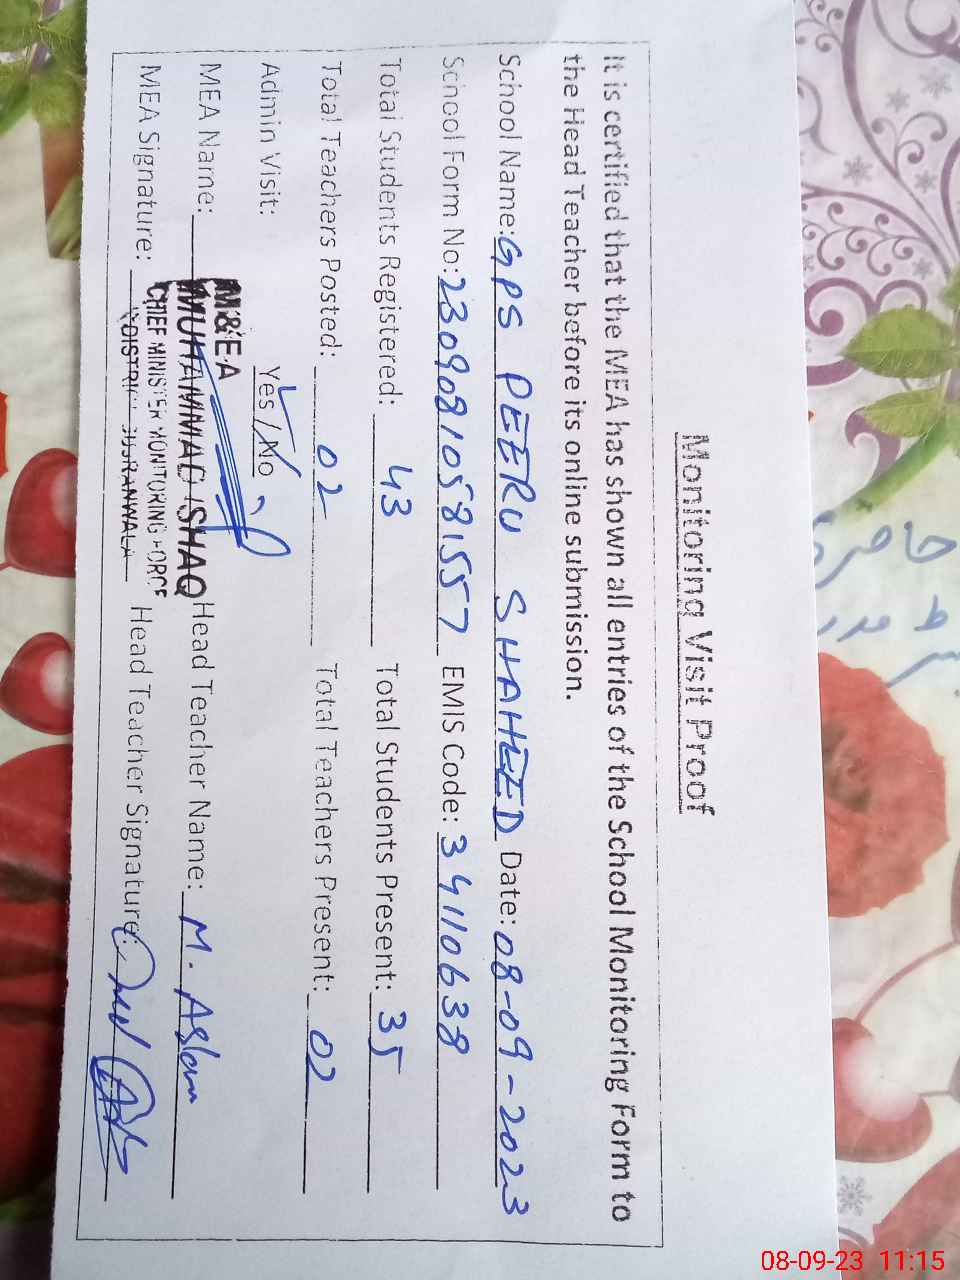 Monitoring Visit Proof
It is certified that the MEA has shown all entries of the School Monitoring Form to
the Head Teacher before its online submission.
School Name: GPS PEERU SHAHEED Date: 08-09-2023
School Form No: 23090810581557 EMIS Code: 34110638
Total Students Registered: 43 Total Students Present: 35
Total Teachers Posted: 02 Total Teachers Present: 02
Admin Visit: Yes / No
M&E.A
MEA Name: MUHAMMAD ISHAQ Head Teacher Name: M. Aslam
CHIEF MINISTER MONITORING FORCE
MEA Signature: DISTRICT GUJRANWALA Head Teacher Signature:
حاضری
08-09-23 11:15